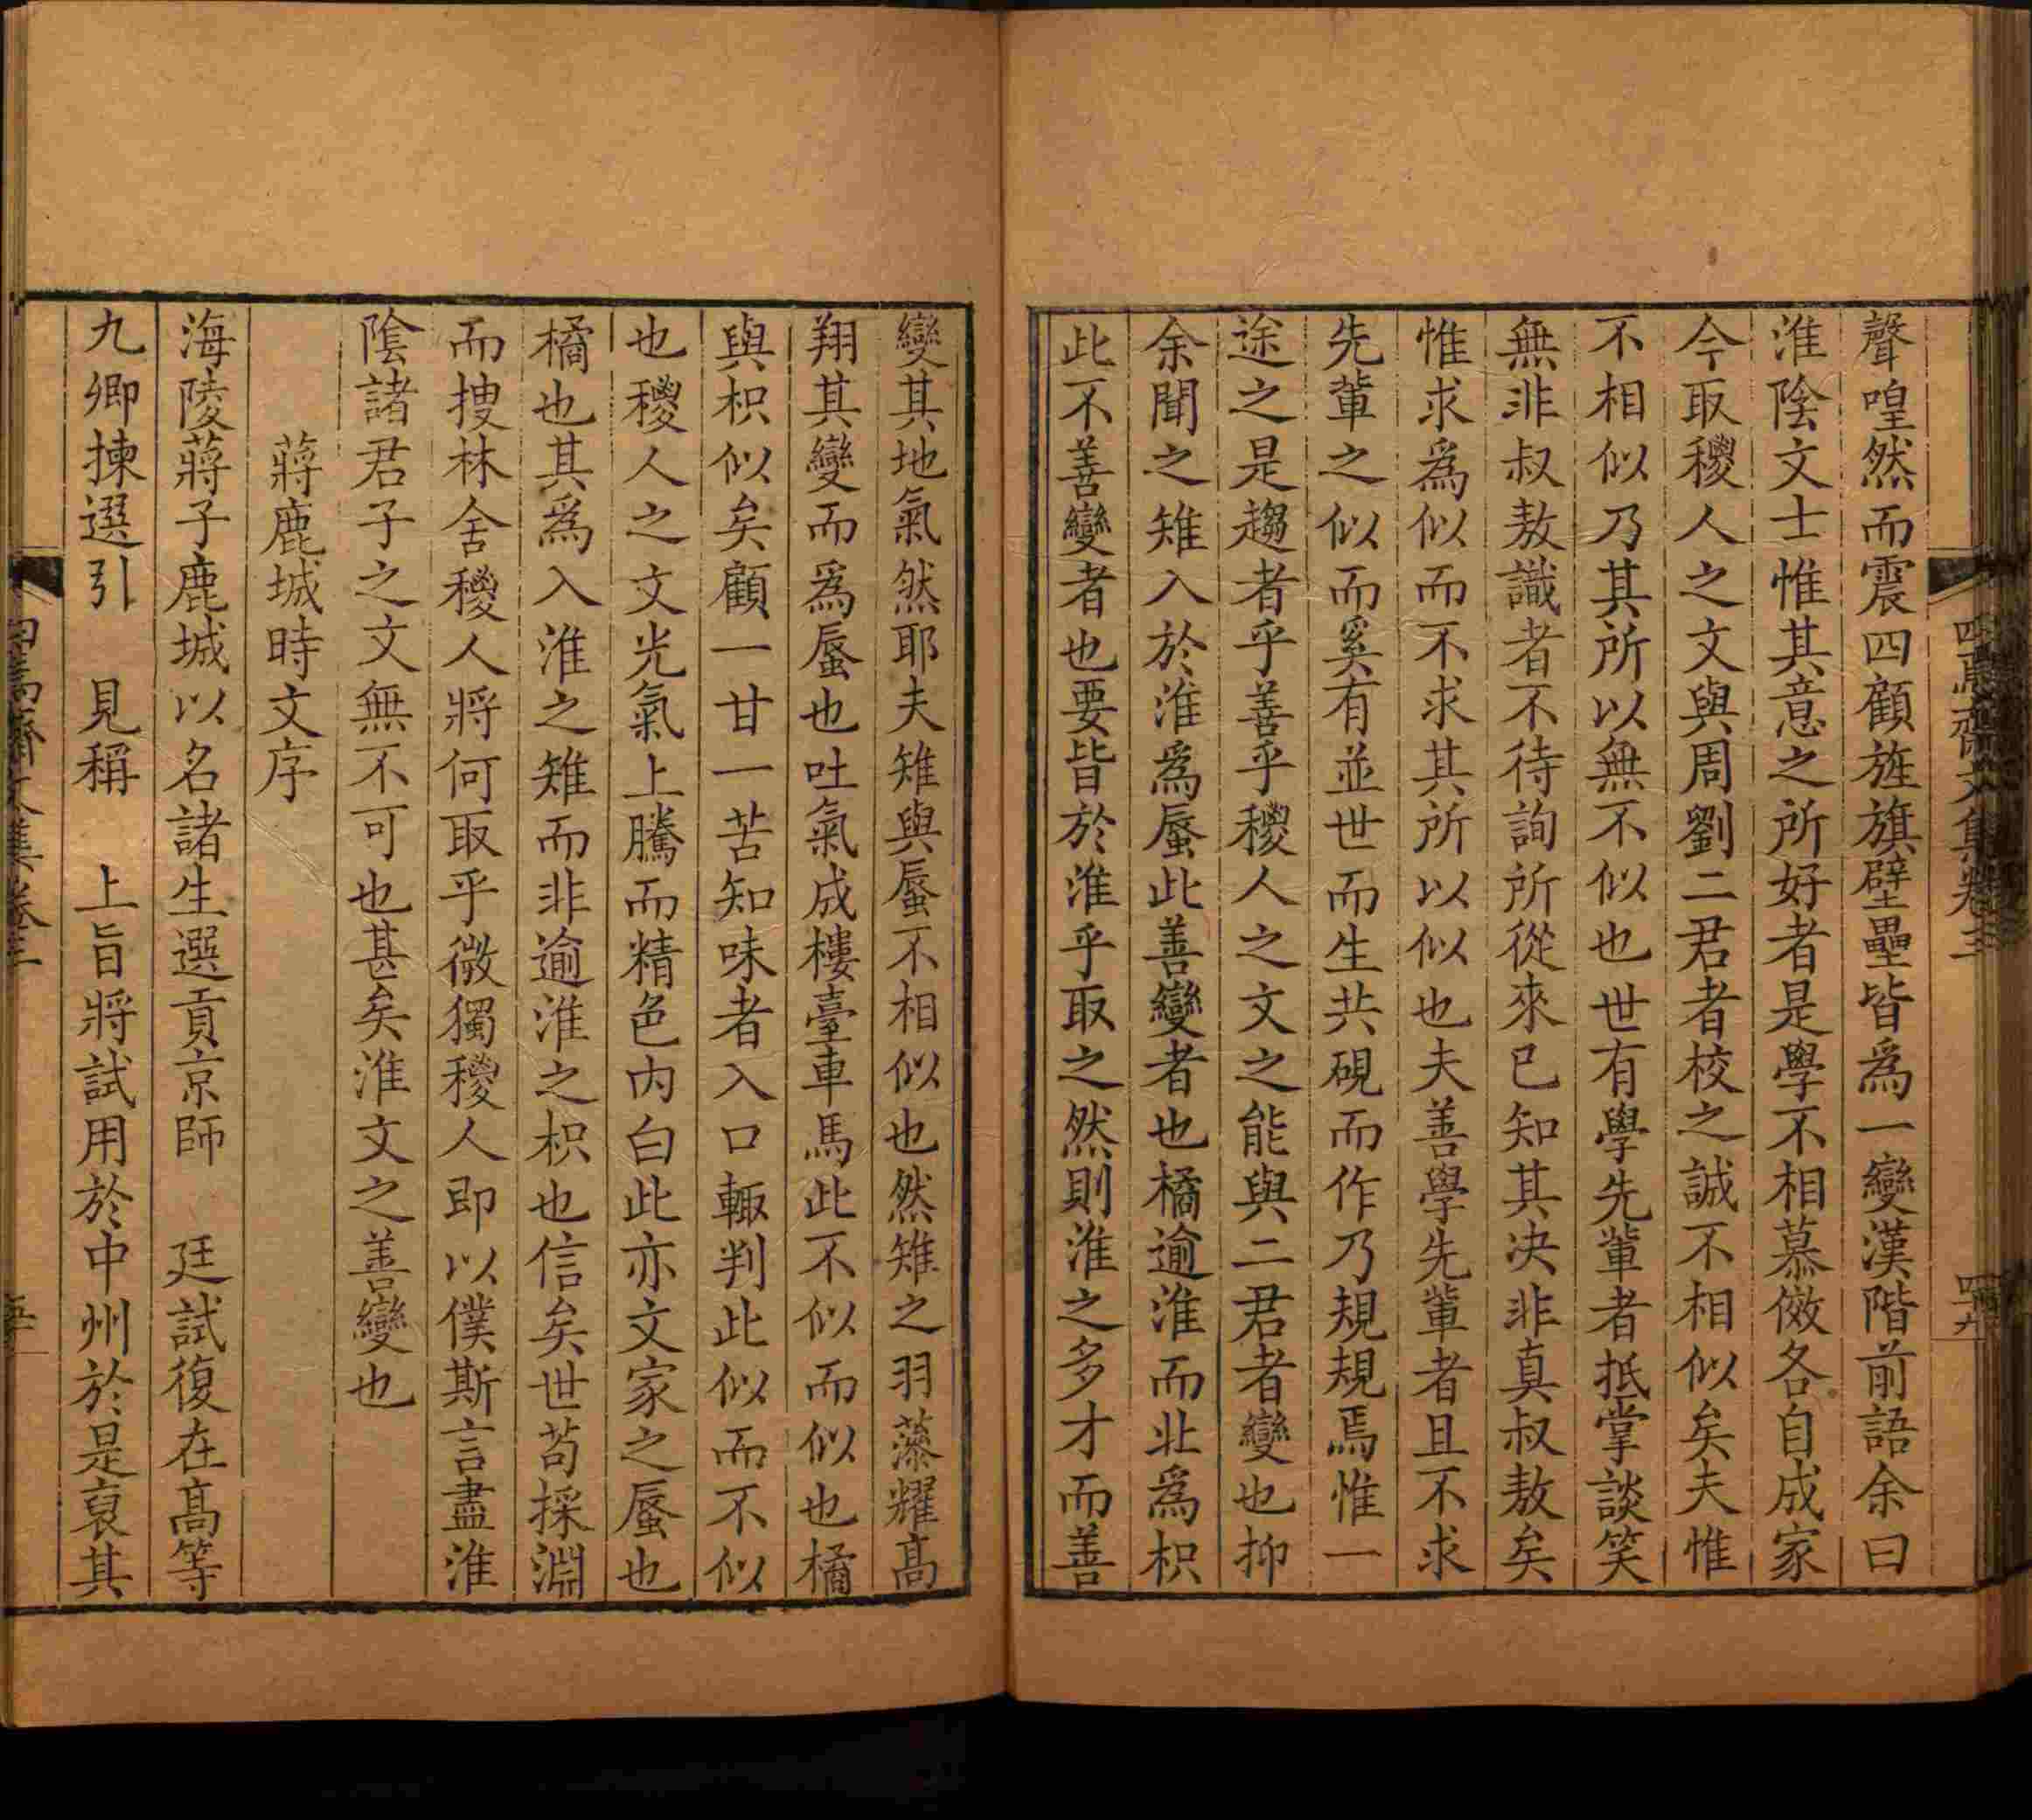 聲喤然而震四顧旌旗壁壘皆爲一變漢階前語余曰
淮陰文士惟其意之所好者是學不相慕傚各自成家
今取稷人之文與周劉二君者校之誠不相似矣夫惟
不相似乃其所以無不似也世有學先輩者抵掌談笑
無非叔敖識者不待詢所從來已知其决非真叔敖矣
惟求爲似而不求其所以似也夫善學先輩者且不求
先輩之似而奚有並世而生共硯而作乃規規焉惟一
途之是趨者乎善乎稷人之文之能與二君者變也抑
余聞之雉入於淮爲蜃此善變者也橘逾淮而北爲枳
此不善變者也要皆於淮乎取之然則淮之多才而善
變其地氣然耶夫雉與蜃不相似也然雉之羽藻耀高
翔其變而爲蜃也吐氣成樓臺車馬此不似而似也橘
與枳似矣顧一甘一苦知味者入口輒判此似而不似
也稷人之文光氣上騰而精色内白此亦文家之蜃也
橘也其爲入淮之雉而非逾淮之枳也信矣世苟採淵
而搜林舍稷人將何取乎微獨稷人即以僕斯言盡淮
陰諸君子之文無不可也甚矣淮文之善變也
蔣鹿城時文序
海陵蔣子鹿城以名諸生選貢京師 廷試復在高等
九卿揀選引 見稱 上旨將試用於中州於是裒其